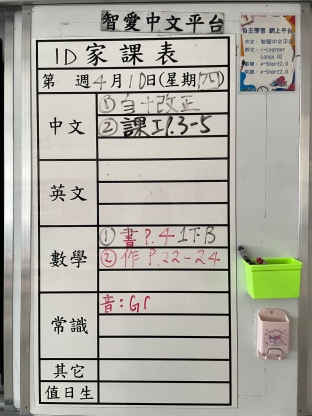 智愛中文平台
1D 家課表
第 週 4月10日(星期四)
中文
①自十改正
②課工P.3-5
英文
數學
①書P.4-1下B
②作 P.22-24
常識
音:Gr
其它
值日生
自主學習 網上平台
中文: 智愛中文平台
英文: i-Learner
數學: e-Smart2.0
常識: e-Smart2.0